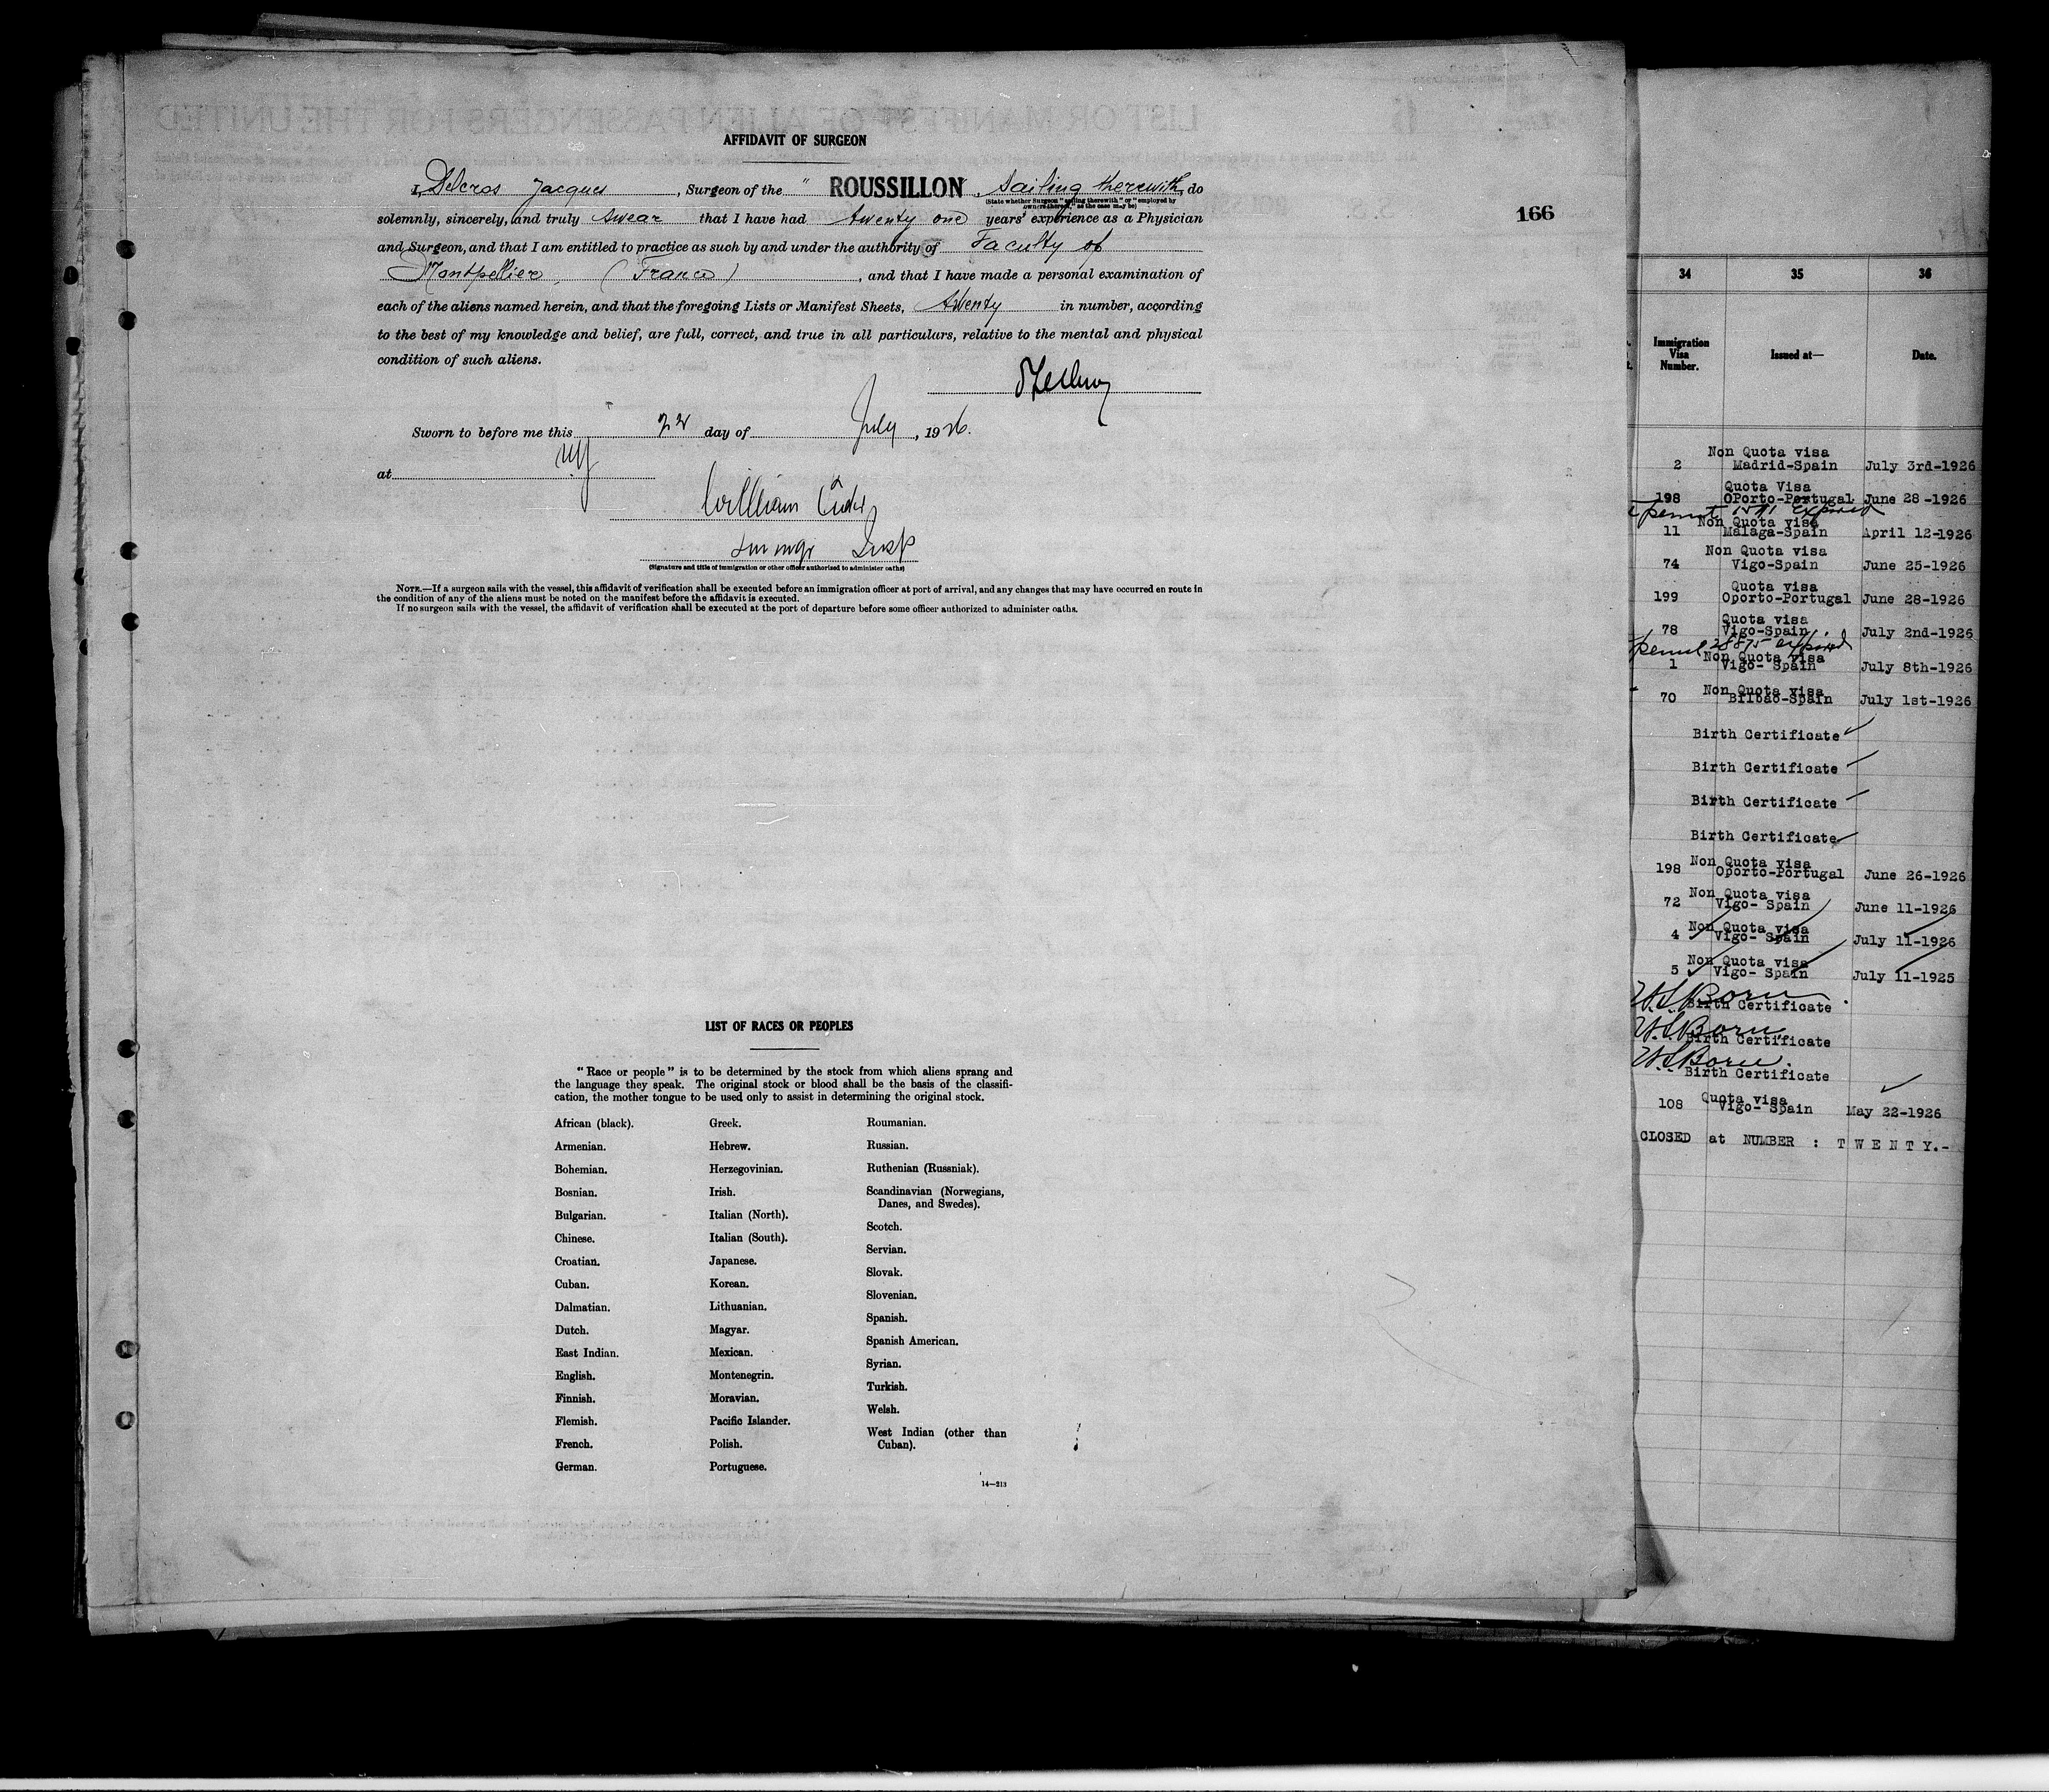 AFFIDAVIT OF SURGEON
I, Delcros Jacques, Surgeon of the " ROUSSILLON, sailing therewith, do
(State whether Surgeon "sailing therewith" or "employed by
owners thereof," as the case may be)
solemnly, sincerely, and truly swear that I have had twenty one years' experience as a Physician
and Surgeon, and that I am entitled to practice as such by and under the authority of Faculty of
Montpellier, (France), and that I have made a personal examination of
each of the aliens named herein, and that the foregoing Lists or Manifest Sheets, twenty in number, according
to the best of my knowledge and belief, are full, correct, and true in all particulars, relative to the mental and physical
condition of such aliens.
Sworn to before me this 22 day of July, 1926.
at NY
William
Immgr Insp
(Signature and title of immigration or other officer authorized to administer oaths)
NOTE.—If a surgeon sails with the vessel, this affidavit of verification shall be executed before an immigration officer at port of arrival, and any changes that may have occurred en route in
the condition of any of the aliens must be noted on the manifest before the affidavit is executed.
If no surgeon sails with the vessel, the affidavit of verification shall be executed at the port of departure before some officer authorized to administer oaths.
LIST OF RACES OR PEOPLES
"Race or people" is to be determined by the stock from which aliens sprang and
the language they speak. The original stock or blood shall be the basis of the classifi-
cation, the mother tongue to be used only to assist in determining the original stock.
African (black).
Armenian.
Bohemian.
Bosnian.
Bulgarian.
Chinese.
Croatian.
Cuban.
Dalmatian.
Dutch.
East Indian.
English.
Finnish.
Flemish.
French.
German.
Greek.
Hebrew.
Herzegovinian.
Irish.
Italian (North).
Italian (South).
Japanese.
Korean.
Lithuanian.
Magyar.
Mexican.
Montenegrin.
Moravian.
Pacific Islander.
Polish.
Portuguese.
Roumanian.
Russian.
Ruthenian (Russniak).
Scandinavian (Norwegians,
Danes, and Swedes).
Scotch.
Servian.
Slovak.
Slovenian.
Spanish.
Spanish American.
Syrian.
Turkish.
Welsh.
West Indian (other than
Cuban).
14—213
166
34 35 36
Immigration
Visa
Number.
Issued at—
Date.
Non Quota visa
2 Madrid-Spain July 3rd-1926
Quota Visa
198 OPorto-Portugal June 28-1926
permit expired
Non Quota visa
11 Malaga-Spain April 12-1926
Non Quota visa
74 Vigo-Spain June 25-1926
Quota visa
199 Oporto-Portugal June 28-1926
Quota visa
78 Vigo-Spain July 2nd-1926
permit expired
Non Quota visa
1 Vigo- Spain July 8th-1926
Non Quota visa
70 Bilbao-Spain July 1st-1926
Birth Certificate
Birth Certificate
Birth Certificate
Birth Certificate
Non Quota visa
198 Oporto-Portugal June 26-1926
Non Quota visa
72 Vigo- Spain June 11-1926
Non Quota visa
4 Vigo- Spain July 11-1926
Non Quota visa
5 Vigo- Spain July 11-1925
U.S. Born
Birth Certificate
U.S. Born
Birth Certificate
U.S. Born.
Birth Certificate
Quota visa
108 Vigo- Spain May 22-1926
CLOSED at NUMBER : T W E N T Y.-